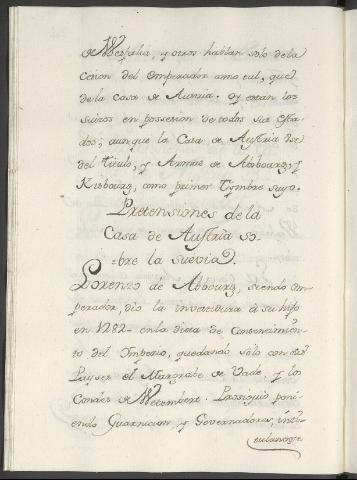 de Wesfalia, y otros hablan solo de la
Cecion del Emperador como tal, que
de la Casa de Austria. Oy estan los
suizos en possecion de todos sus Esta-
dos; aunque la Casa de Austria use
del titulo, y Armas de Absbourg, y
Kisbourg, como primer Tymbre suyo.
Pretensiones de la
Casa de Austria so-
-bre la suevia.
Lorenzo de Absbourg, siendo em-
perador, dio la investidura à su hijo
en 1282 en la dieta de Contencimien-
to del Imperio, quedando solo con
Payser el Margrabe de Vade, y los
Condes de Wetembert. Prosiguio poni-
endo Guarnicion y Governadores, inti-
tulandose